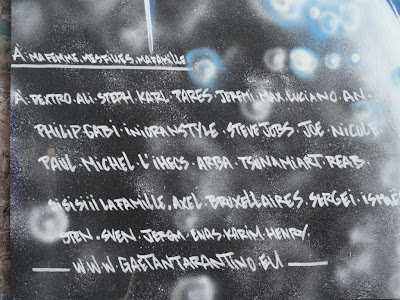 À · MA FEMME · MES FILLES · MA FAMILLE
À · DEXTRO · ALI · STEPH · KARL · PARES · JEREMI · MAX · LUCIANO · AN ·
PHILIP · GABI · INIORANSTYLE · STEVE JOBS · JOE · NICOLE
PAUL · MICHEL · L'IHECS · ARBA · TSUNAMIART · REAB ·
LA FAMILLE, AXEL · BRUXELLAIRES · SERGEI ·
JEN · SVEN · JEREM · ENAS · KARIM · HENRY ·
WWW GAETANTARANTINO.EU